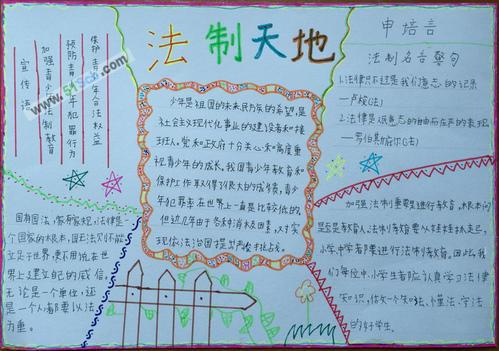 法制天地
保护青少年合法权益
预防青少年犯罪行为
加强青少年法制教育
宣传法
申培言
法制名言警句
1.法律只不过是我们意志的记录
—卢梭(法)
2.法律是人民意志的自由而庄严的表现
—罗伯斯庇尔(法)
少年是祖国的未来,民族的希望,是
社会主义现代化事业的建设者和接
班人。党和政府十分关心和高度重
视青少年的成长。我国青少年教育和
保护工作取得了很大的成绩,青少
年犯罪率在世界上一直是比较低的。
但近几年由于各种消极因素
国有国法,家有家规,法律是一
个国家的根本,国无法则不能
立足于世界,更不用说在世
界上建立自己的威信,
无论是一个单位,还
是一个人都要以法
为重。
加强法制重要性进行教育,根本问
小学,中学都要进行法制教育。因此,我
们每位中、小学生都应认真学习法律
知识,做一个知法、懂法、守法
的好学生。
www.51Sch.com